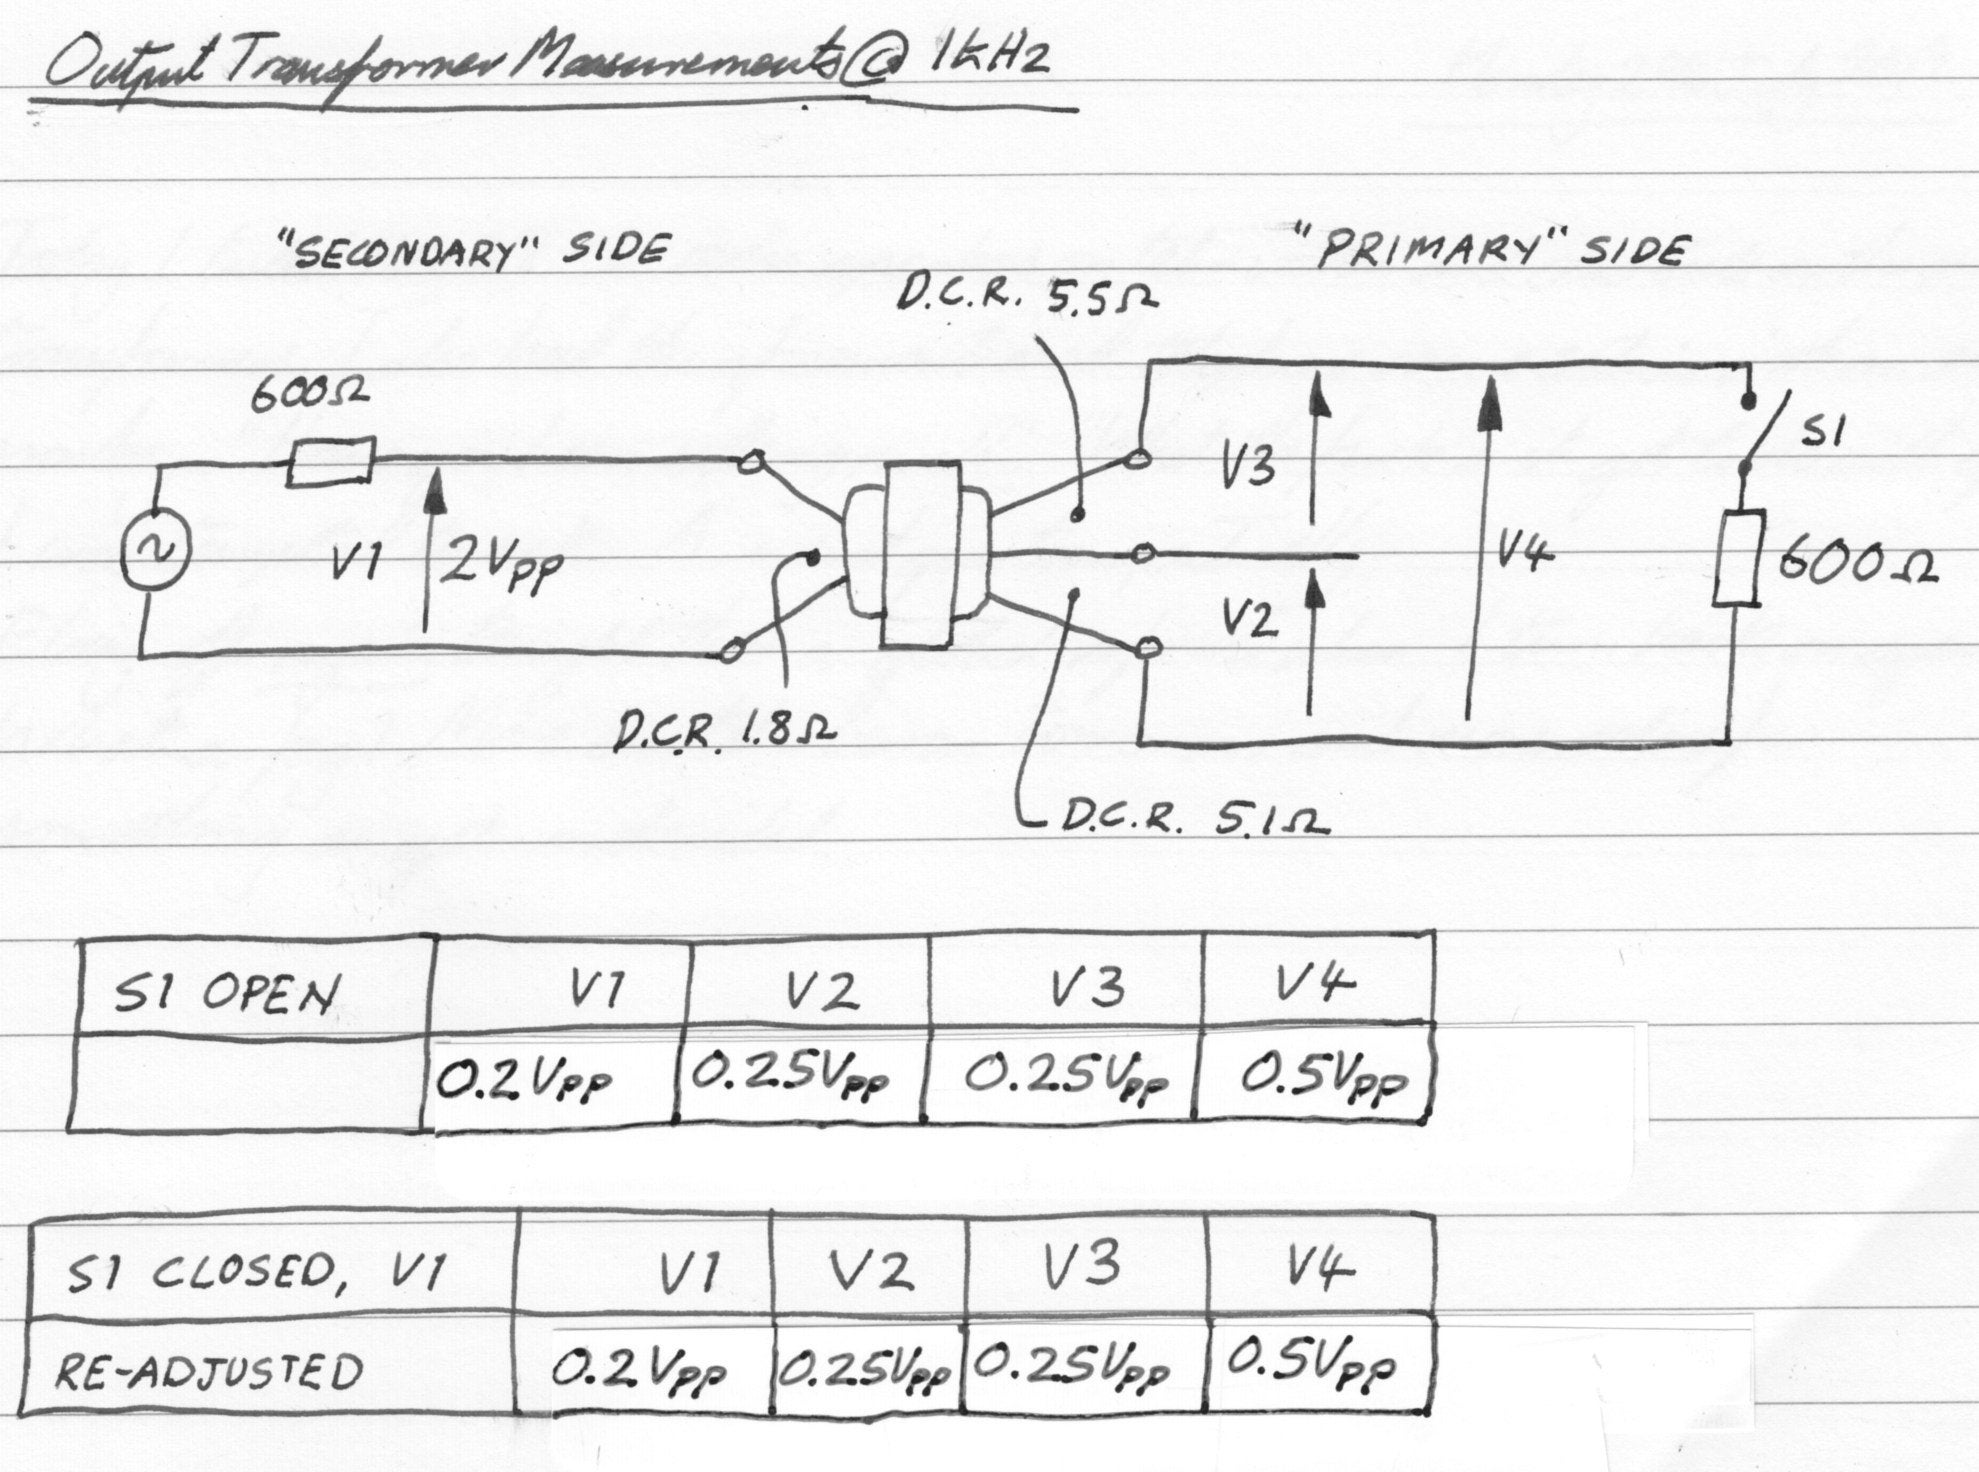 Output Transformer Measurements @ 1kHz
"SECONDARY" SIDE
"PRIMARY" SIDE
D.C.R. 5.5Ω
600Ω
S1
V3
V1
2Vpp
V4
600Ω
V2
D.C.R. 1.8Ω
D.C.R. 5.1Ω
S1 OPEN V1 V2 V3 V4
0.2Vpp 0.25Vpp 0.25Vpp 0.5Vpp
S1 CLOSED, V1 V1 V2 V3 V4
RE-ADJUSTED 0.2Vpp 0.25Vpp 0.25Vpp 0.5Vpp